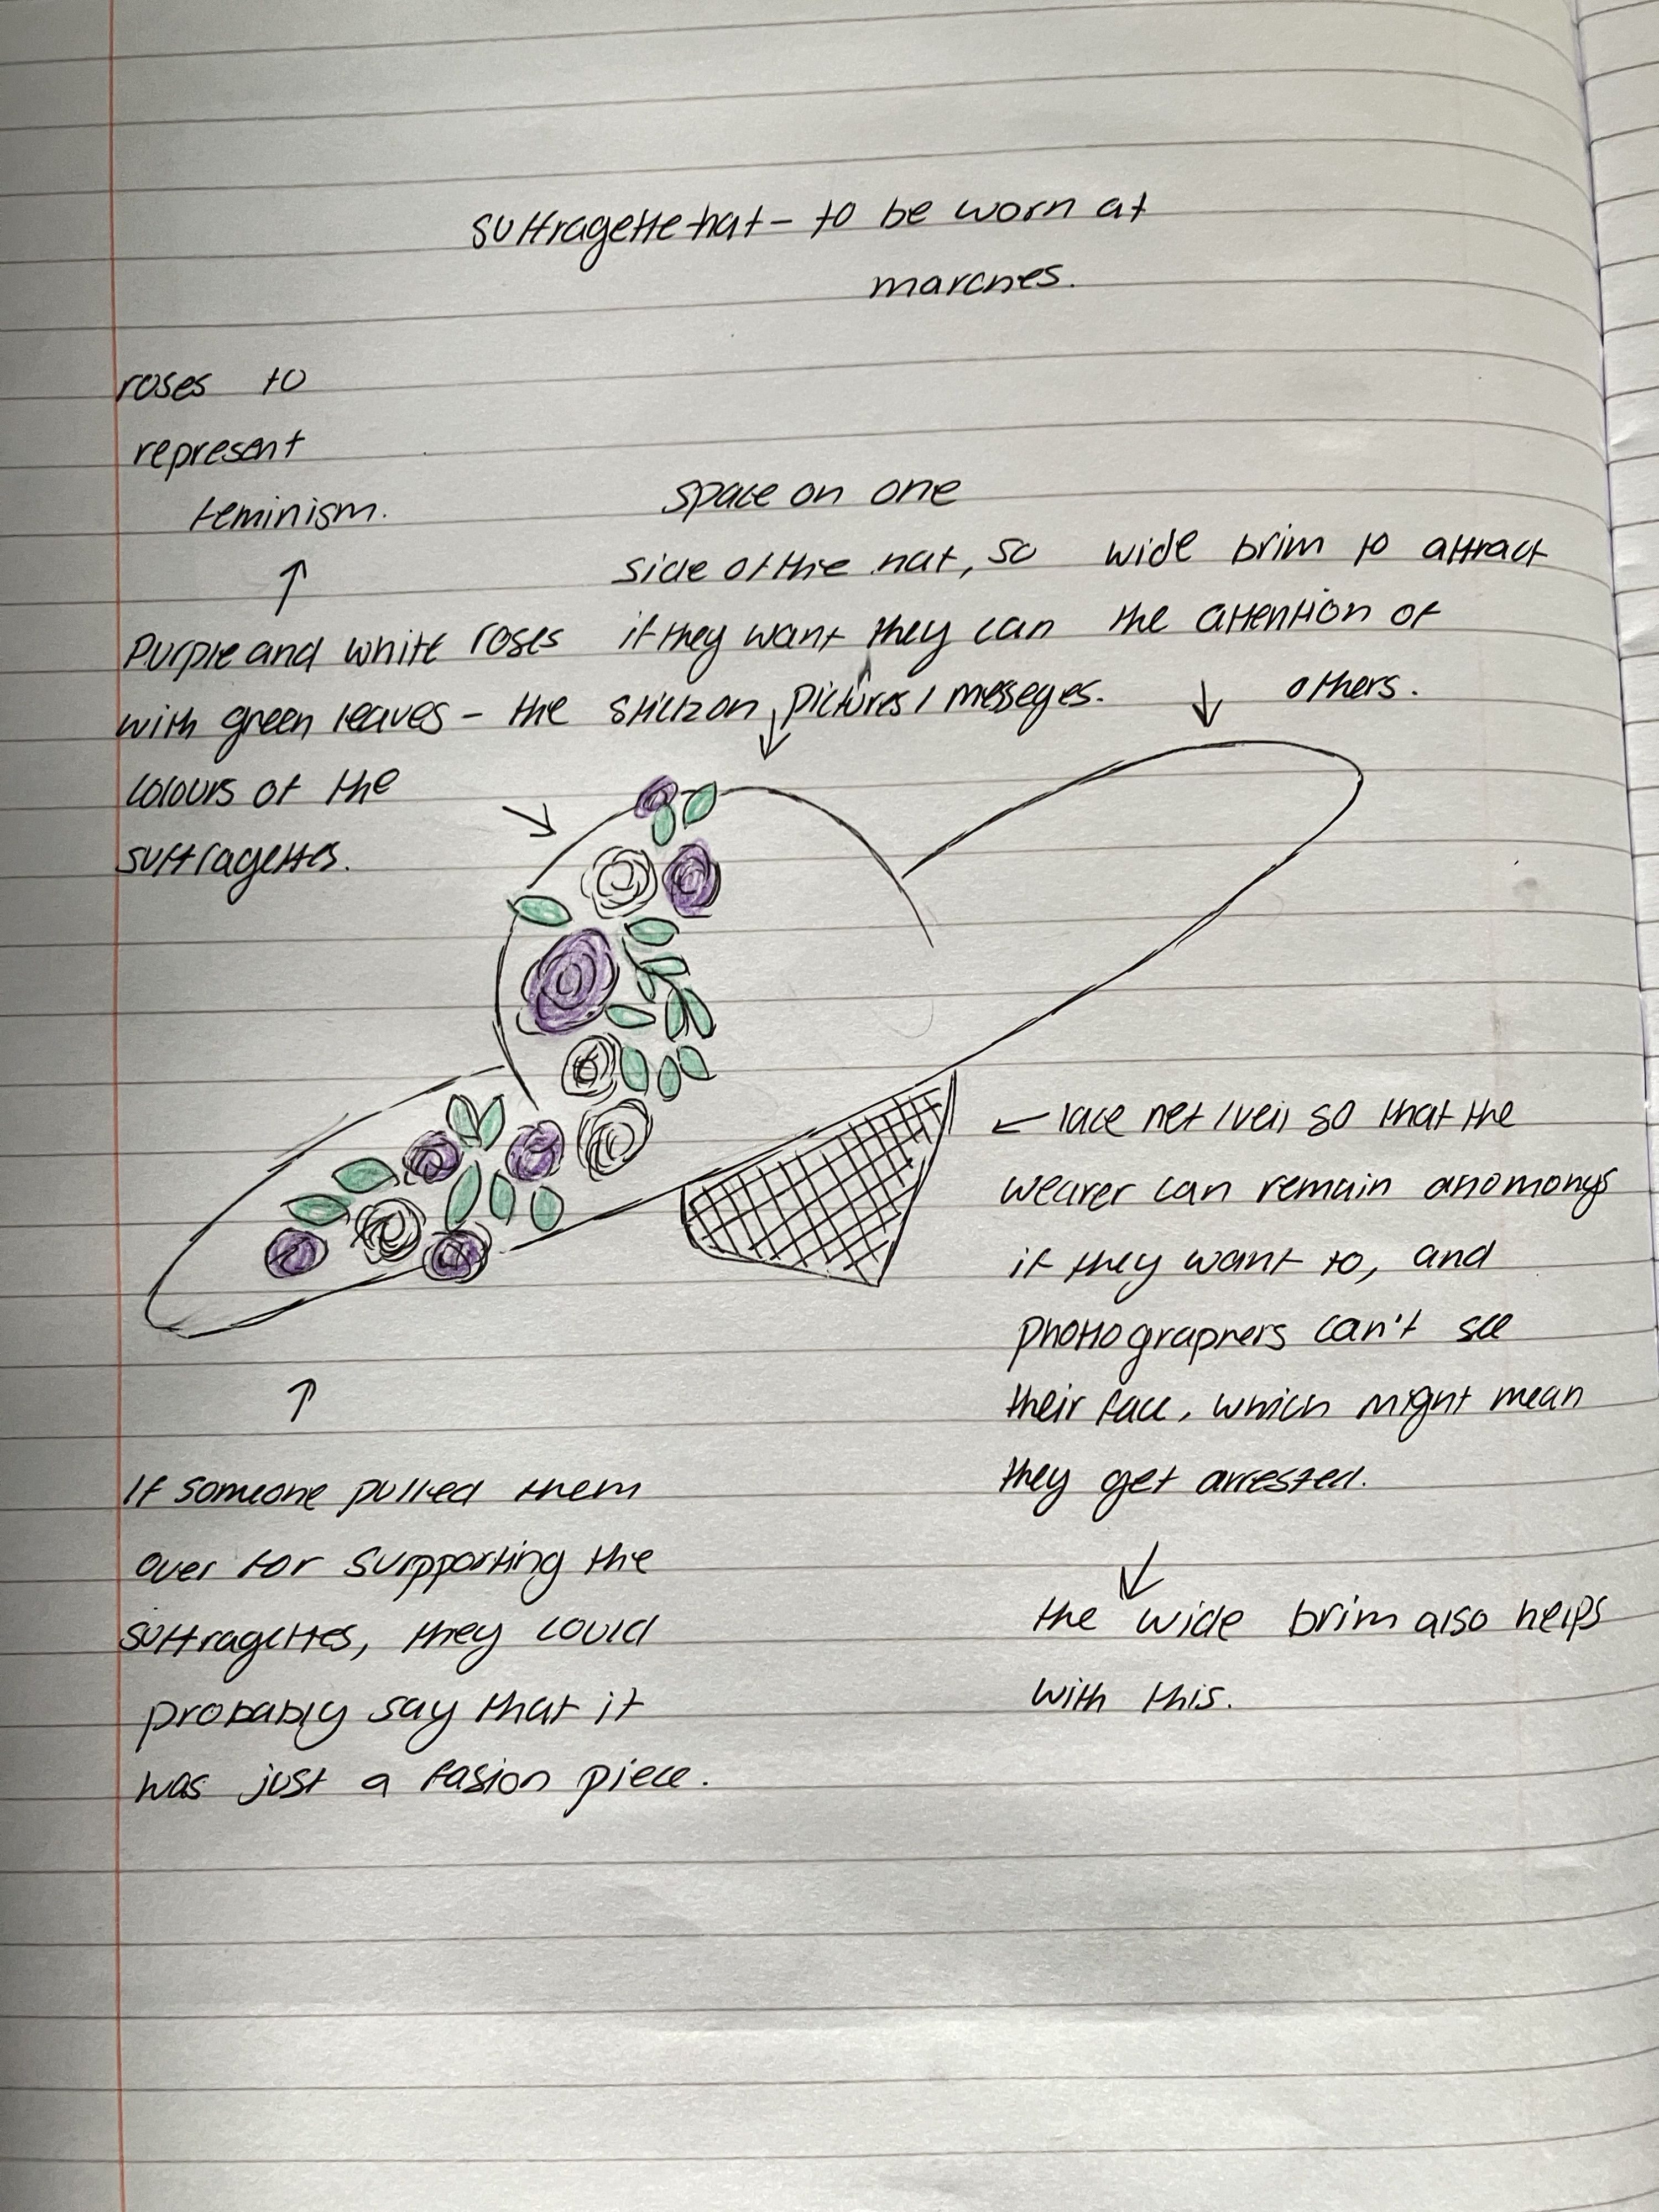 suffragette hat - to be worn at
marches.
roses to
represent
feminism.
↑
Purple and white roses
with green leaves - the
colours of the
suffragettes.
space on one
side of the hat, so
if they want they can
stick on pictures / messeges.
wide brim to attract
the attention of
others.
← lace net / veil so that the
wearer can remain anomonys
if they want to, and
photographers can't see
their face, which might mean
they get arrested.
↓
the wide brim also helps
with this.
↑
If someone pulled them
over for surpporting the
suffragettes, they could
probably say that it
was just a fasion piece.